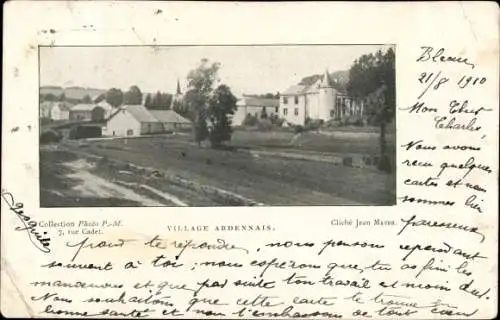 Bleau
21/8 1910
Mon Cher
Charles,
Nous avons
reçu quelques
cartes et nous
paresseux
VILLAGE ARDENNAIS.
Collection Photo P.-M.
7, rue Cadet.
Cliché Jean
pour te répondre, nous pensons
souvent à toi; nous espérons que tu as fini les
manœuvres et que pas suite ton travail et moins dur.
Nous souhaitons que cette carte te trouve en
bonne santé et nous t'embrassons de tout cœur